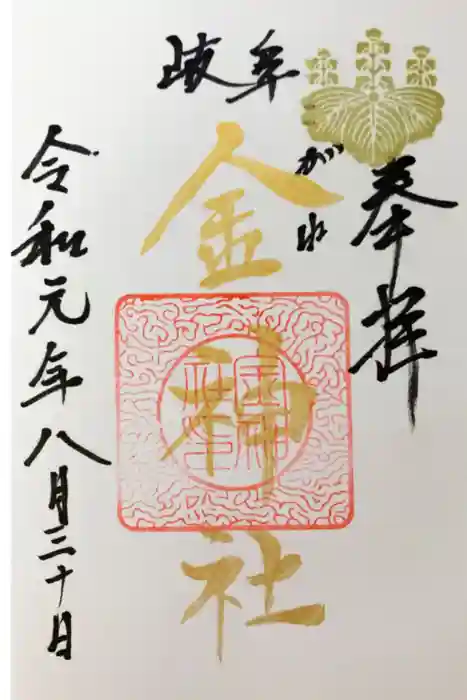 奉拝
岐阜
金神社
がね
令和元年八月三十日
金神社